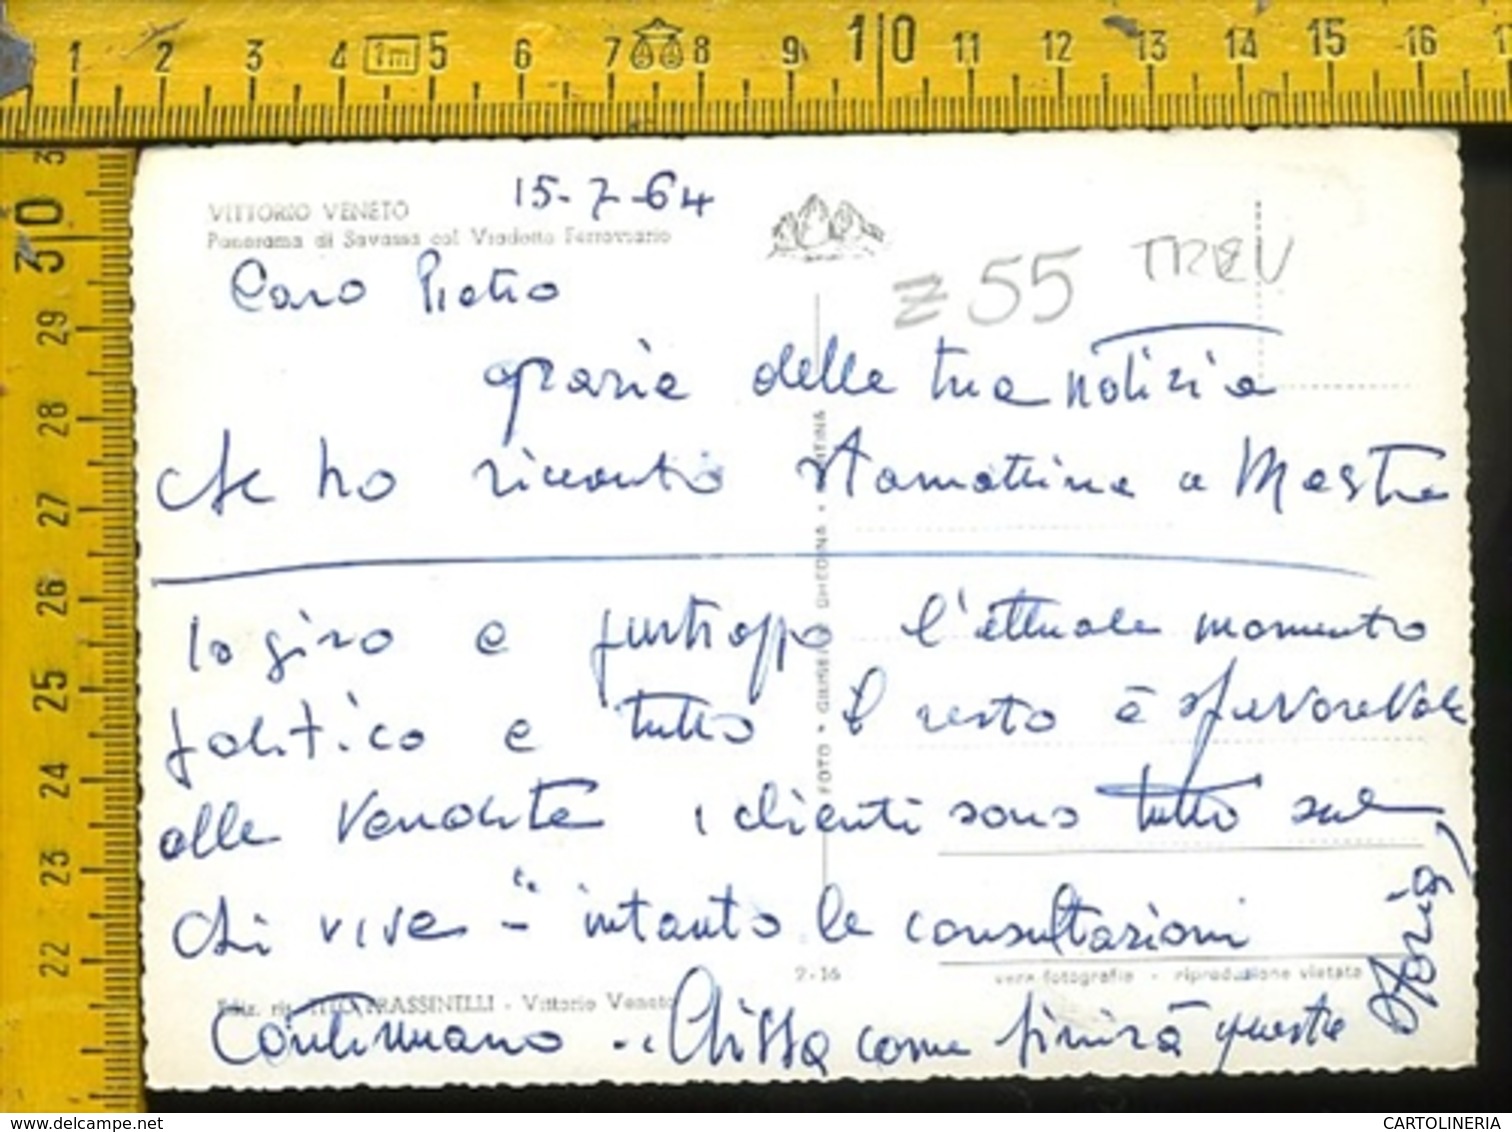 1 2 3 4 1m 5 6 7 8 9 10 11 12 13 14 15 16
30 29 28 27 26 25 24 23 22
15-7-64
VITTORIO VENETO
Panorama di Savassa col Viadotto Ferroviario
Z 55 TREV
Caro Pietro
grazie della tua notizia
che ho ricevuto stamattina a Mestre
Io giro e purtroppo l'attuale momento
politico e tutto il resto è sfavorevole
alle vendite i clienti sono tutto sul
chi vive - intanto le consultazioni
continuano .. Chissà come finirà questa
storia
FOTO • GHEDINA •
2-16
vera fotografia - riproduzione vietata
Ediz. ris. TITO FRASSINELLI - Vittorio Veneto
CARTOLINERIA